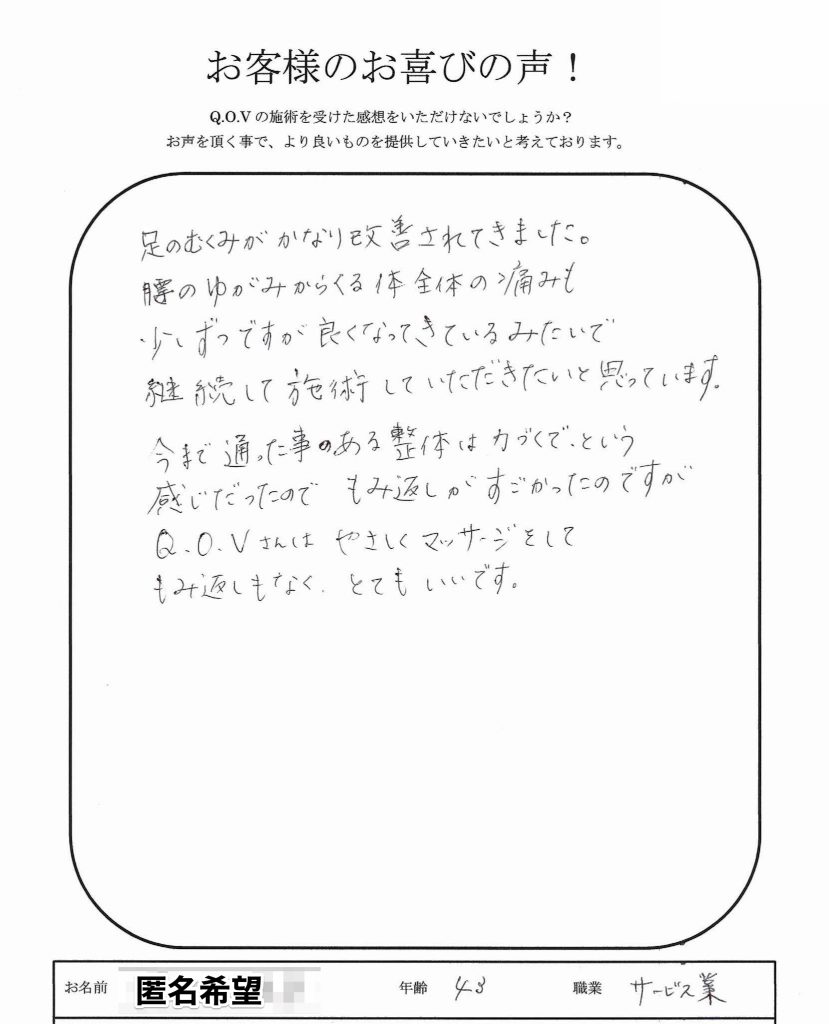 お客様のお喜びの声！
Q.O.Vの施術を受けた感想をいただけないでしょうか？
お声を頂く事で、より良いものを提供していきたいと考えております。
足のむくみがかなり改善されてきました。
腰のゆがみからくる体全体の痛みも
少しずつですが良くなってきているみたいで
継続して施術していただきたいと思っています。
今まで通った事のある整体は力づくで、という
感じだったので もみ返しがすごかったのですが
Q.O.Vさんは やさしくマッサージをして
もみ返しもなく、とてもいいです。
お名前 匿名希望 年齢 43 職業 サービス業